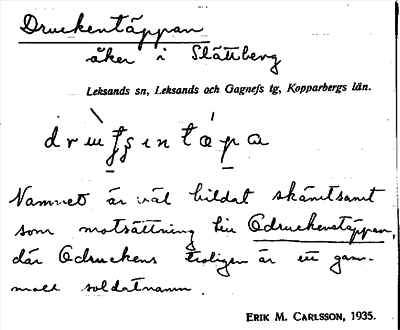 Druckentäppan
åker i Slättberg
Leksands sn, Leksands och Gagnefs tg, Kopparbergs län.
Namnet är väl bildat skämtsamt
som motsättning till Odruckenstäppan,
där Odruckens troligen är ett gam-
malt soldatnamn.
ERIK M. CARLSSON, 1935.